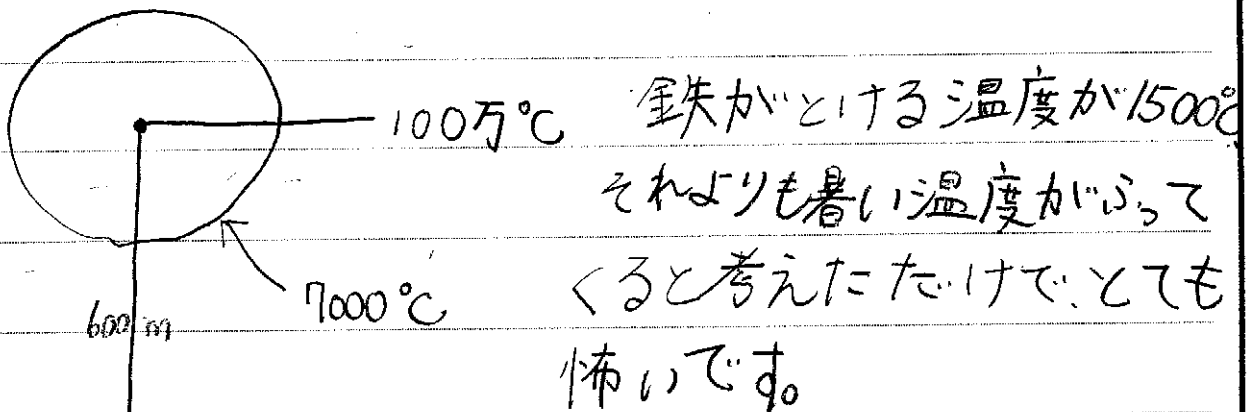 100万℃
7000℃
600m
鉄がとける温度が1500℃
それよりも暑い温度がふって
くると考えただけで、とても
怖いです。